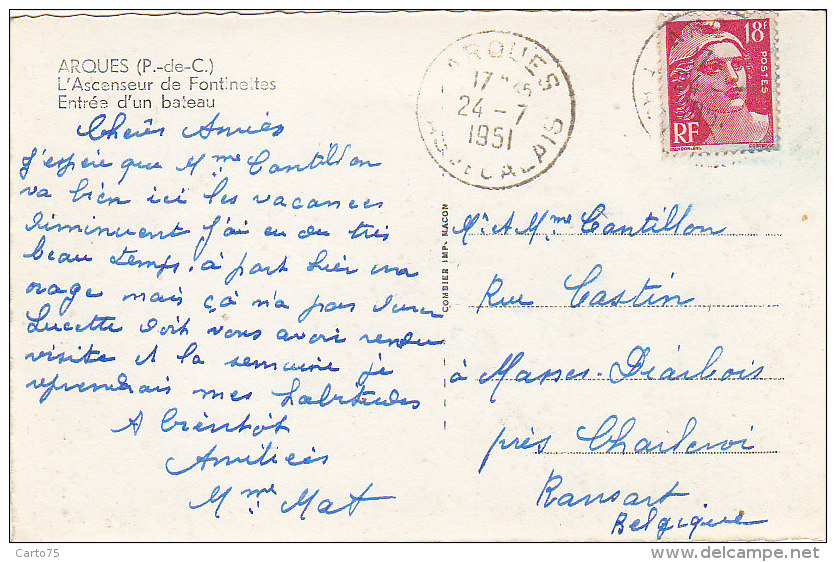 ARQUES (P.-de-C.)
L'Ascenseur de Fontinettes
Entrée d'un bateau
Chers Amies
J'espère que Mme Cantillon
va bien ici les vacances
diminuent j'ai eu du très
beau temps. à part hier un
orage mais çà n'a pas durer
Lucette doit vous avoir rendu
visite et la semaine je
reprendrais mes habitudes
A bientôt
Amitiées
Mme Mat
COMBIER IMP. MACON
ARQUES
17 45
24 - 7
1951
PAS DE CALAIS
18F
POSTES
RF
Mr. & Mme Cantillon
Rue Castin
à Masses-Diarbois
près Charleroi
Ransart
Belgique
Carto75
www.delcampe.net